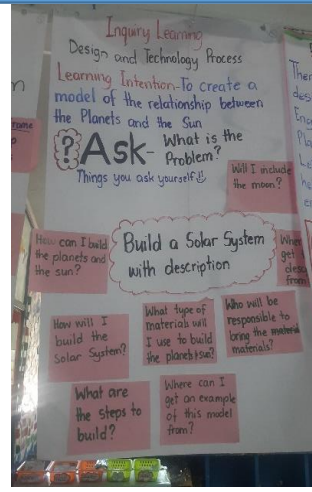 Inquiry Learning
Design and Technology Process
Learning Intention-To create a
model of the relationship between
the Planets and the Sun
? Ask- What is the
Problem?
Things you ask yourself!!
Will I include
the moon?
How can I build
the planets and
the sun?
Build a Solar System
with description
get
from
How will I
build the
Solar System?
What type of
materials will
I use to build
the planets+sun?
Who will be
responsible to
bring the
materials?
What are
the steps to
build?
Where can I
get an example
of this model
from?